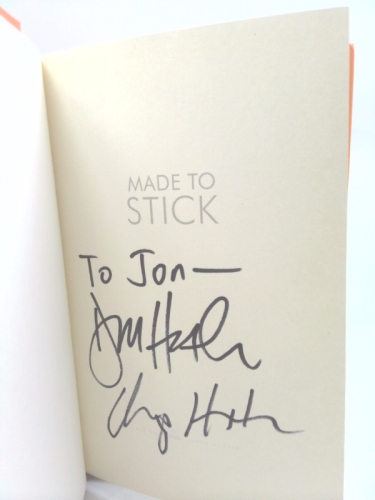 MADE TO
STICK
To Jon—
Dan Heath
Chip Heath